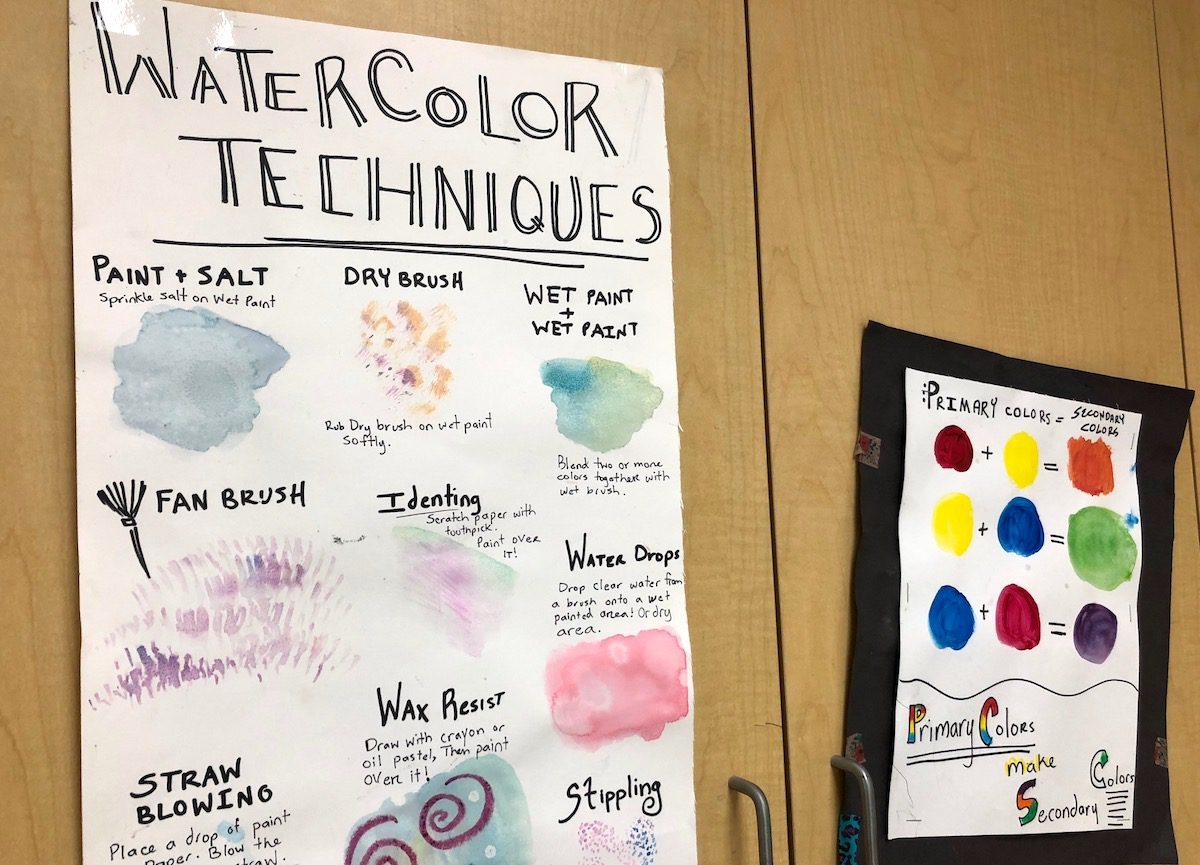 WATERCOLOR
TECHNIQUES
PAINT + SALT
Sprinkle salt on Wet Paint
DRY BRUSH
Rub Dry brush on wet paint
softly.
WET PAINT
+
WET PAINT
Blend two or more
colors together with
wet brush.
FAN BRUSH
Identing
Scratch paper with
toothpick.
Paint over
IT!
WATER DROPS
Drop clear water from
a brush onto a wet
painted area! Or dry
area.
WAX RESIST
Draw with crayon or
oil pastel, Then paint
over it!
STRAW
BLOWING
Place a drop of paint
Paper. Blow the
straw.
Stippling
PRIMARY COLORS = SECONDARY
COLORS
+ =
+ =
+ =
Primary Colors
make
Secondary
Colors